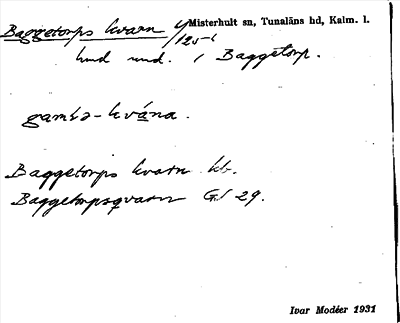 Baggetorps kvarn Misterhult sn, Tunaläns hd, Kalm. l.
hmd und. i Baggetorp.
gamla-kvána.
Baggetorps kvarn kb.
Baggetorpsqvarn GS 29.
Ivar Modéer 1931